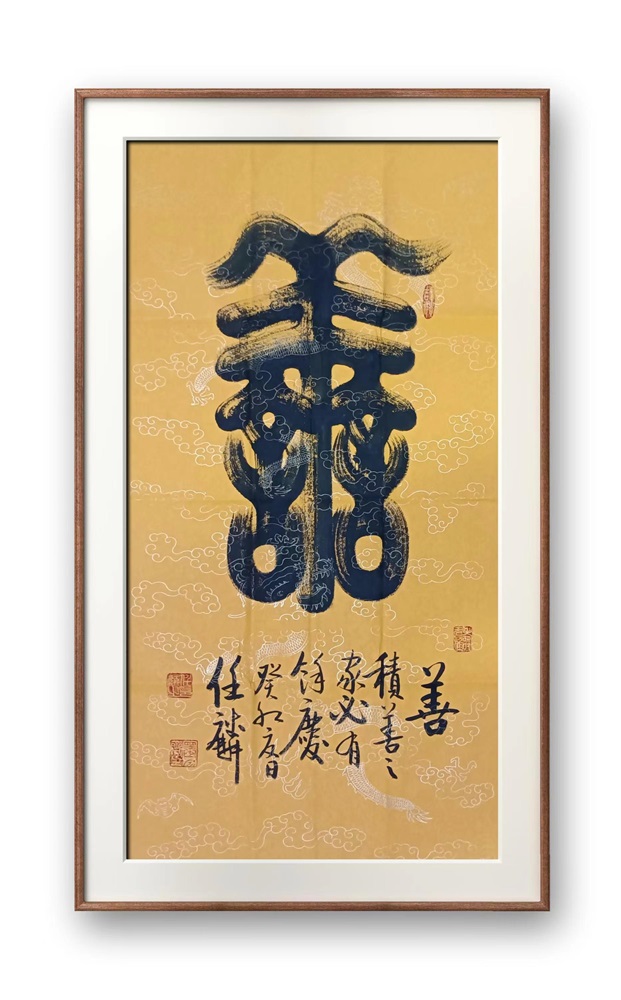 善
善
積善之
家必有
餘慶
癸卯夏日
任麟